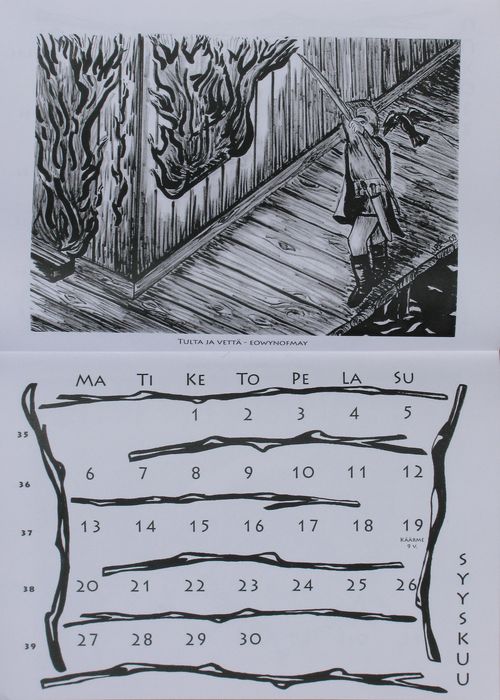 TULTA JA VETTÄ - EOWYNOFMAY
MA TI KE TO PE LA SU
35 1 2 3 4 5
36 6 7 8 9 10 11 12
37 13 14 15 16 17 18 19
KÄÄRME
9 V.
38 20 21 22 23 24 25 26
39 27 28 29 30
SYYSKUU